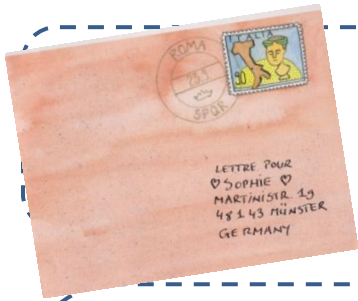 ROMA
SPQR
ITALIA
LETTRE POUR
♡ SOPHIE ♡
MARTINISTR. 19
48143 MÜNSTER
GERMANY